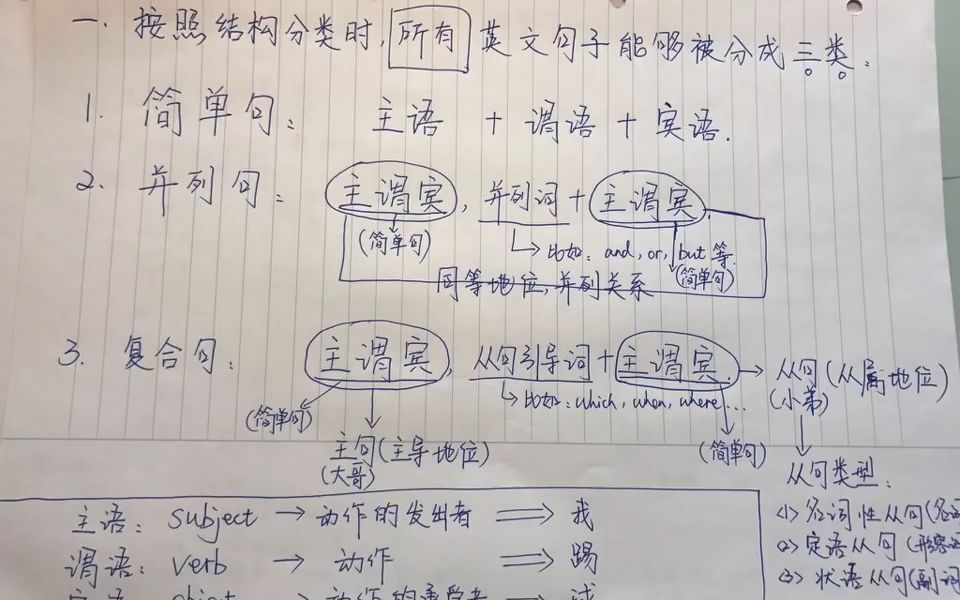 一. 按照结构分类时, 所有 英文句子能够被分成三类.
1. 简单句: 主语 + 谓语 + 宾语.
2. 并列句: 主谓宾, 并列词 + 主谓宾.
(简单句) 比如: and, or, but 等. (简单句)
同等地位, 并列关系
3. 复合句: 主谓宾, 从句引导词 + 主谓宾 → 从句 (从属地位)
(小弟)
(简单句) 比如: which, when, where... (简单句)
主句 (主导地位)
(大哥)
从句类型:
主语: subject → 动作的发出者 ⟹ 我
谓语: verb → 动作 ⟹ 踢
<1> 名词性从句
<2> 定语从句
<3> 状语从句(副词